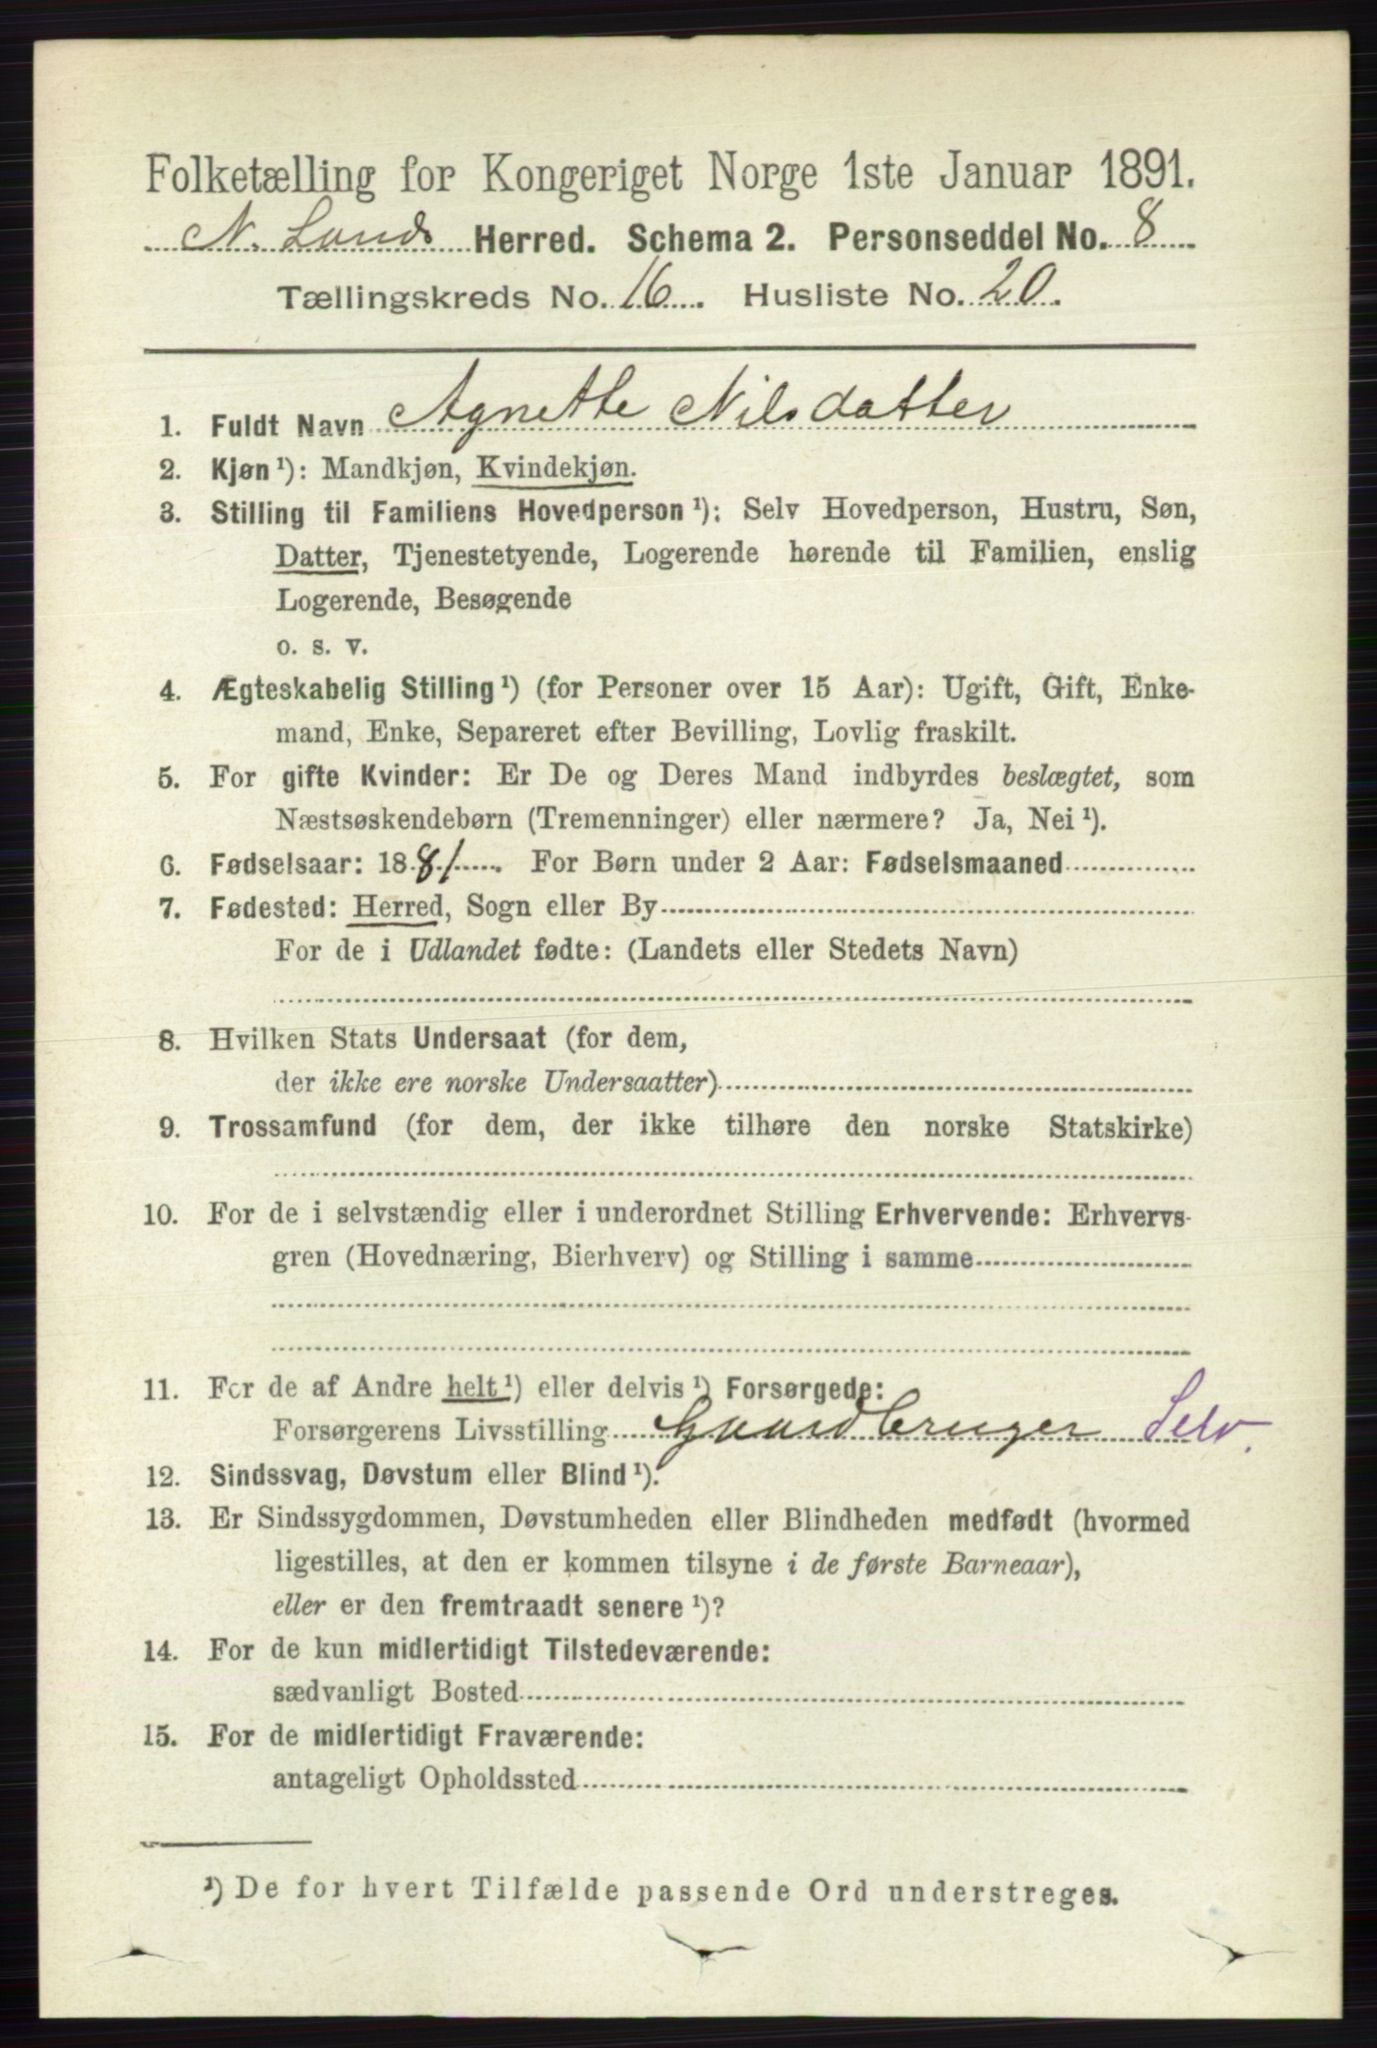 Folketælling for Kongeriget Norge 1ste Januar 1891.
N. Lands Herred. Schema 2. Personseddel No. 8
Tællingskreds No. 16. Husliste No. 20.
1. Fuldt Navn Agnette Nilsdatter
2. Kjøn ¹): Mandkjøn, Kvindekjøn.
3. Stilling til Familiens Hovedperson ¹): Selv Hovedperson, Hustru, Søn,
Datter, Tjenestetyende, Logerende hørende til Familien, enslig
Logerende, Besøgende
o. s. v.
4. Ægteskabelig Stilling ¹) (for Personer over 15 Aar): Ugift, Gift, Enke-
mand, Enke, Separeret efter Bevilling, Lovlig fraskilt.
5. For gifte Kvinder: Er De og Deres Mand indbyrdes beslægtet, som
Næstsøskendebørn (Tremenninger) eller nærmere? Ja, Nei ¹).
6. Fødselsaar: 1881. For Børn under 2 Aar: Fødselsmaaned
7. Fødested: Herred, Sogn eller By
For de i Udlandet fødte: (Landets eller Stedets Navn)
8. Hvilken Stats Undersaat (for dem,
der ikke ere norske Undersaatter)
9. Trossamfund (for dem, der ikke tilhøre den norske Statskirke)
10. For de i selvstændig eller i underordnet Stilling Erhvervende: Erhvervs-
gren (Hovednæring, Bierhverv) og Stilling i samme
11. For de af Andre helt ¹) eller delvis ¹) Forsørgede:
Forsørgerens Livsstilling Gaardbruger Selv.
12. Sindssvag, Døvstum eller Blind ¹).
13. Er Sindssygdommen, Døvstumheden eller Blindheden medfødt (hvormed
ligestilles, at den er kommen tilsyne i de første Barneaar),
eller er den fremtraadt senere ¹)?
14. For de kun midlertidigt Tilstedeværende:
sædvanligt Bosted
15. For de midlertidigt Fraværende:
antageligt Opholdssted
¹) De for hvert Tilfælde passende Ord understreges.